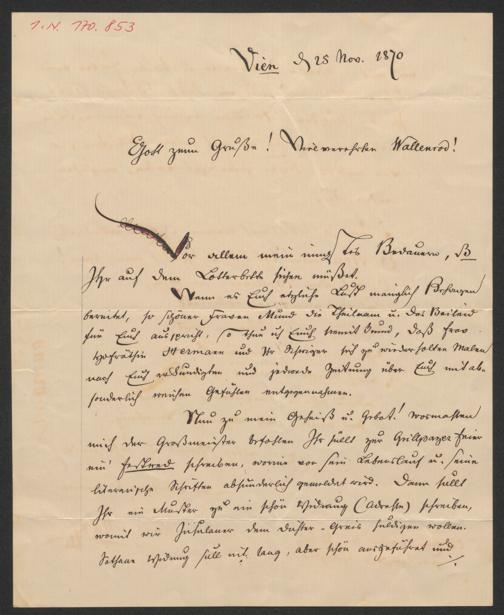 I.N. 170.853
Wien d 28 Nov. 1870
Gott zum Gruße! Vielverehrter Wallenrod!
Vor allem mein innigstes Bedauern, ß
Ihr auf dem Lotterbette sichen müßtet.
Wenn es Euch etzliche Lust männiglich
bereitet, so schöner Frauen Mund die Theilnam u. das Beileid
für Euch ausspricht, so thu ich Euch hiemit kund, daß Frau
Hermann und Fr sich zu wiederholten Malen
nach Euch erkundigten und jedwede Zeitung über Euch mit ab-
sonderlich weichen Gefühlen entgegennahmen.
Nun zu mein Geheiß u. Gebot! wasmaßen
mich der Großmeister befohlen Ihr sullt zur Grillparzer Feier
ein' Festred schreiben, worin von sein Lebenslauf u. seine
literarische Schriften absunderlich gemeldet wird. Dann sullt
Ihr ein Muster zu ein schön Widmung (Adreße) schreiben,
womit wir Insulaner dem Dichter-Greis huldigen wollen.
Sothane Widmung sull nit lang, aber schön ausgeführet und